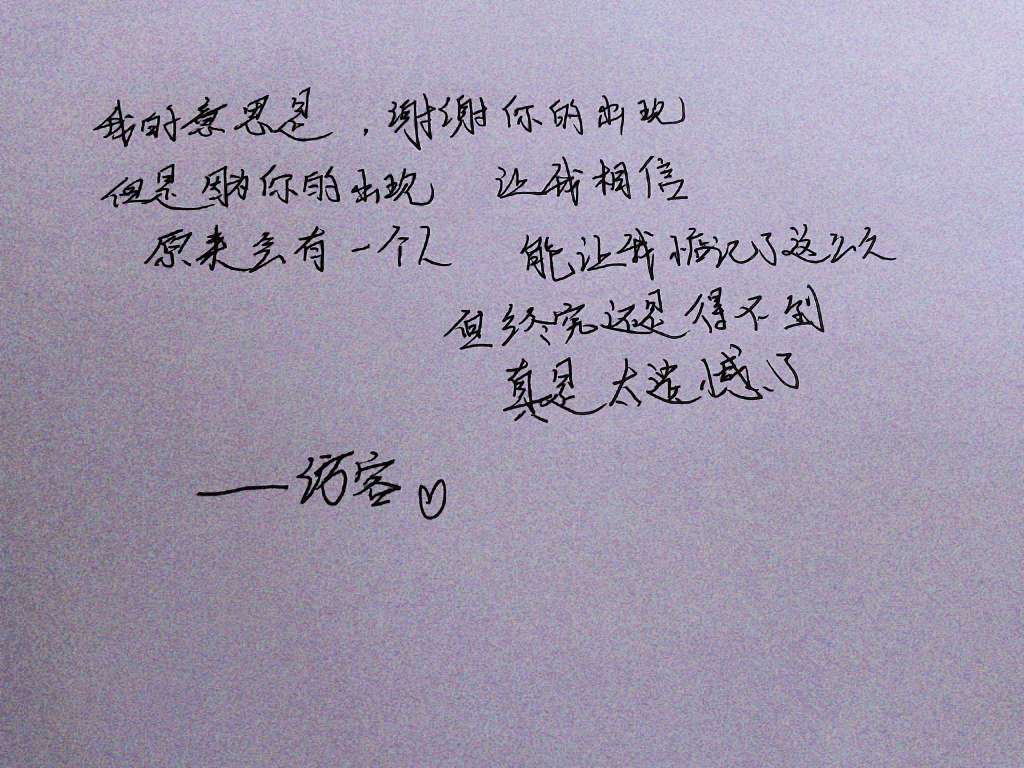 我的意思是，谢谢你的出现
但是因为你的出现 让我相信
原来会有一个人 能让我惦记了这么久
但终究还是得不到
真是太遗憾了
——访客♡